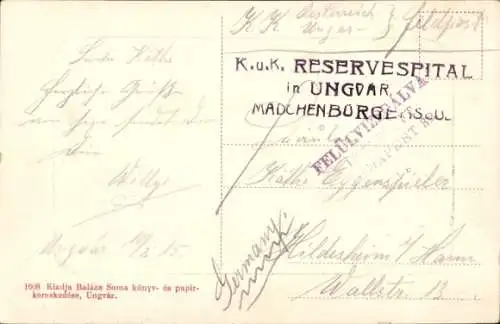 K. K. Oesterreich
Ungar- Feldpost
K.u.K. RESERVESPITAL
in UNGVÁR
MÄDCHENBÜRGERS.
FELÜLVIZSGÁLVA
Liebe Käthe
Herzliche Grüße
sendet dir
Dein
Willy
Ungvár 15.
Fräulein
Käthe Eggenspieler
Hildesheim i/ Hann
Wallstr. 13
Germany
1608 Kiadja Balázs Soma könyv- és papir-
kereskedése, Ungvár.